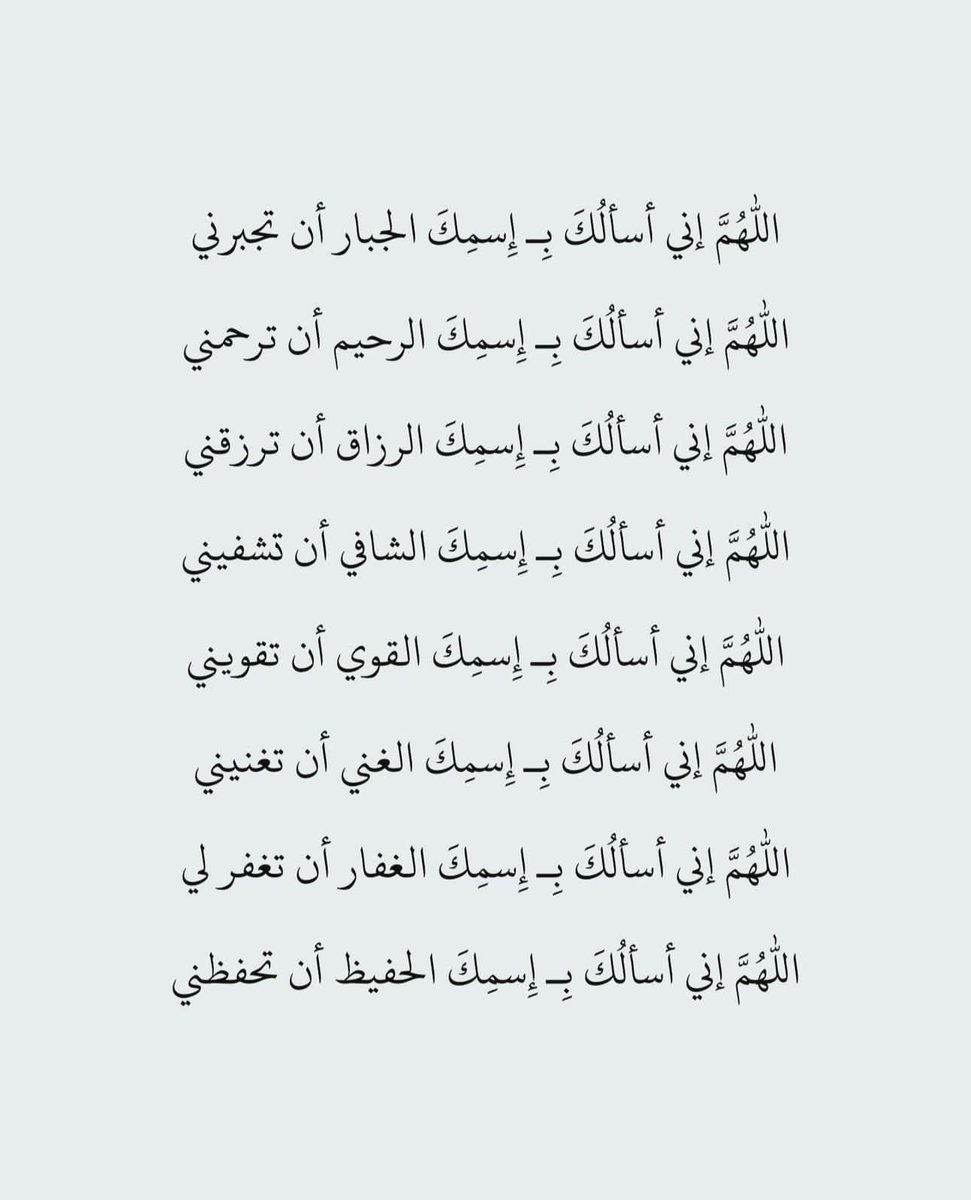 اللّٰهُمَّ إني أسألُكَ بِـ إِسمِكَ الجبار أن تجبرني
اللّٰهُمَّ إني أسألُكَ بِـ إِسمِكَ الرحيم أن ترحمني
اللّٰهُمَّ إني أسألُكَ بِـ إِسمِكَ الرزاق أن ترزقني
اللّٰهُمَّ إني أسألُكَ بِـ إِسمِكَ الشافي أن تشفيني
اللّٰهُمَّ إني أسألُكَ بِـ إِسمِكَ القوي أن تقويني
اللّٰهُمَّ إني أسألُكَ بِـ إِسمِكَ الغني أن تغنيني
اللّٰهُمَّ إني أسألُكَ بِـ إِسمِكَ الغفار أن تغفر لي
اللّٰهُمَّ إني أسألُكَ بِـ إِسمِكَ الحفيظ أن تحفظني